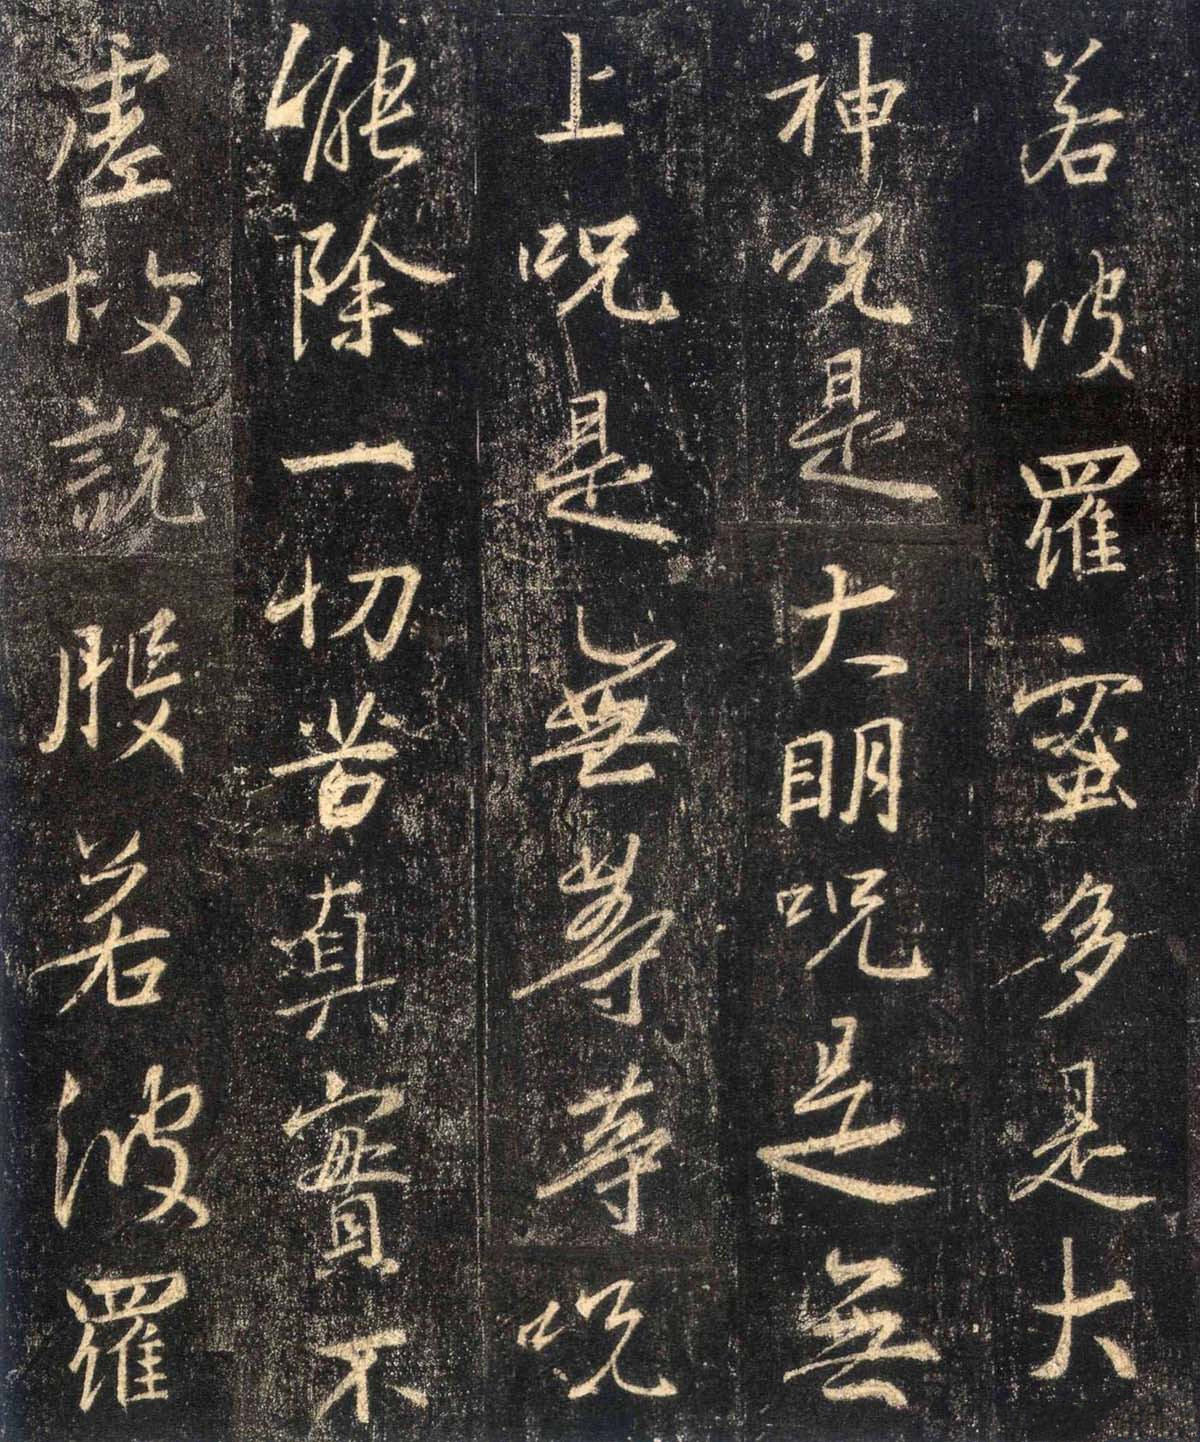 若波羅蜜多是大
神呪是大明呪是無
上呪是無等等呪
能除一切苦真實不
虛故說般若波羅